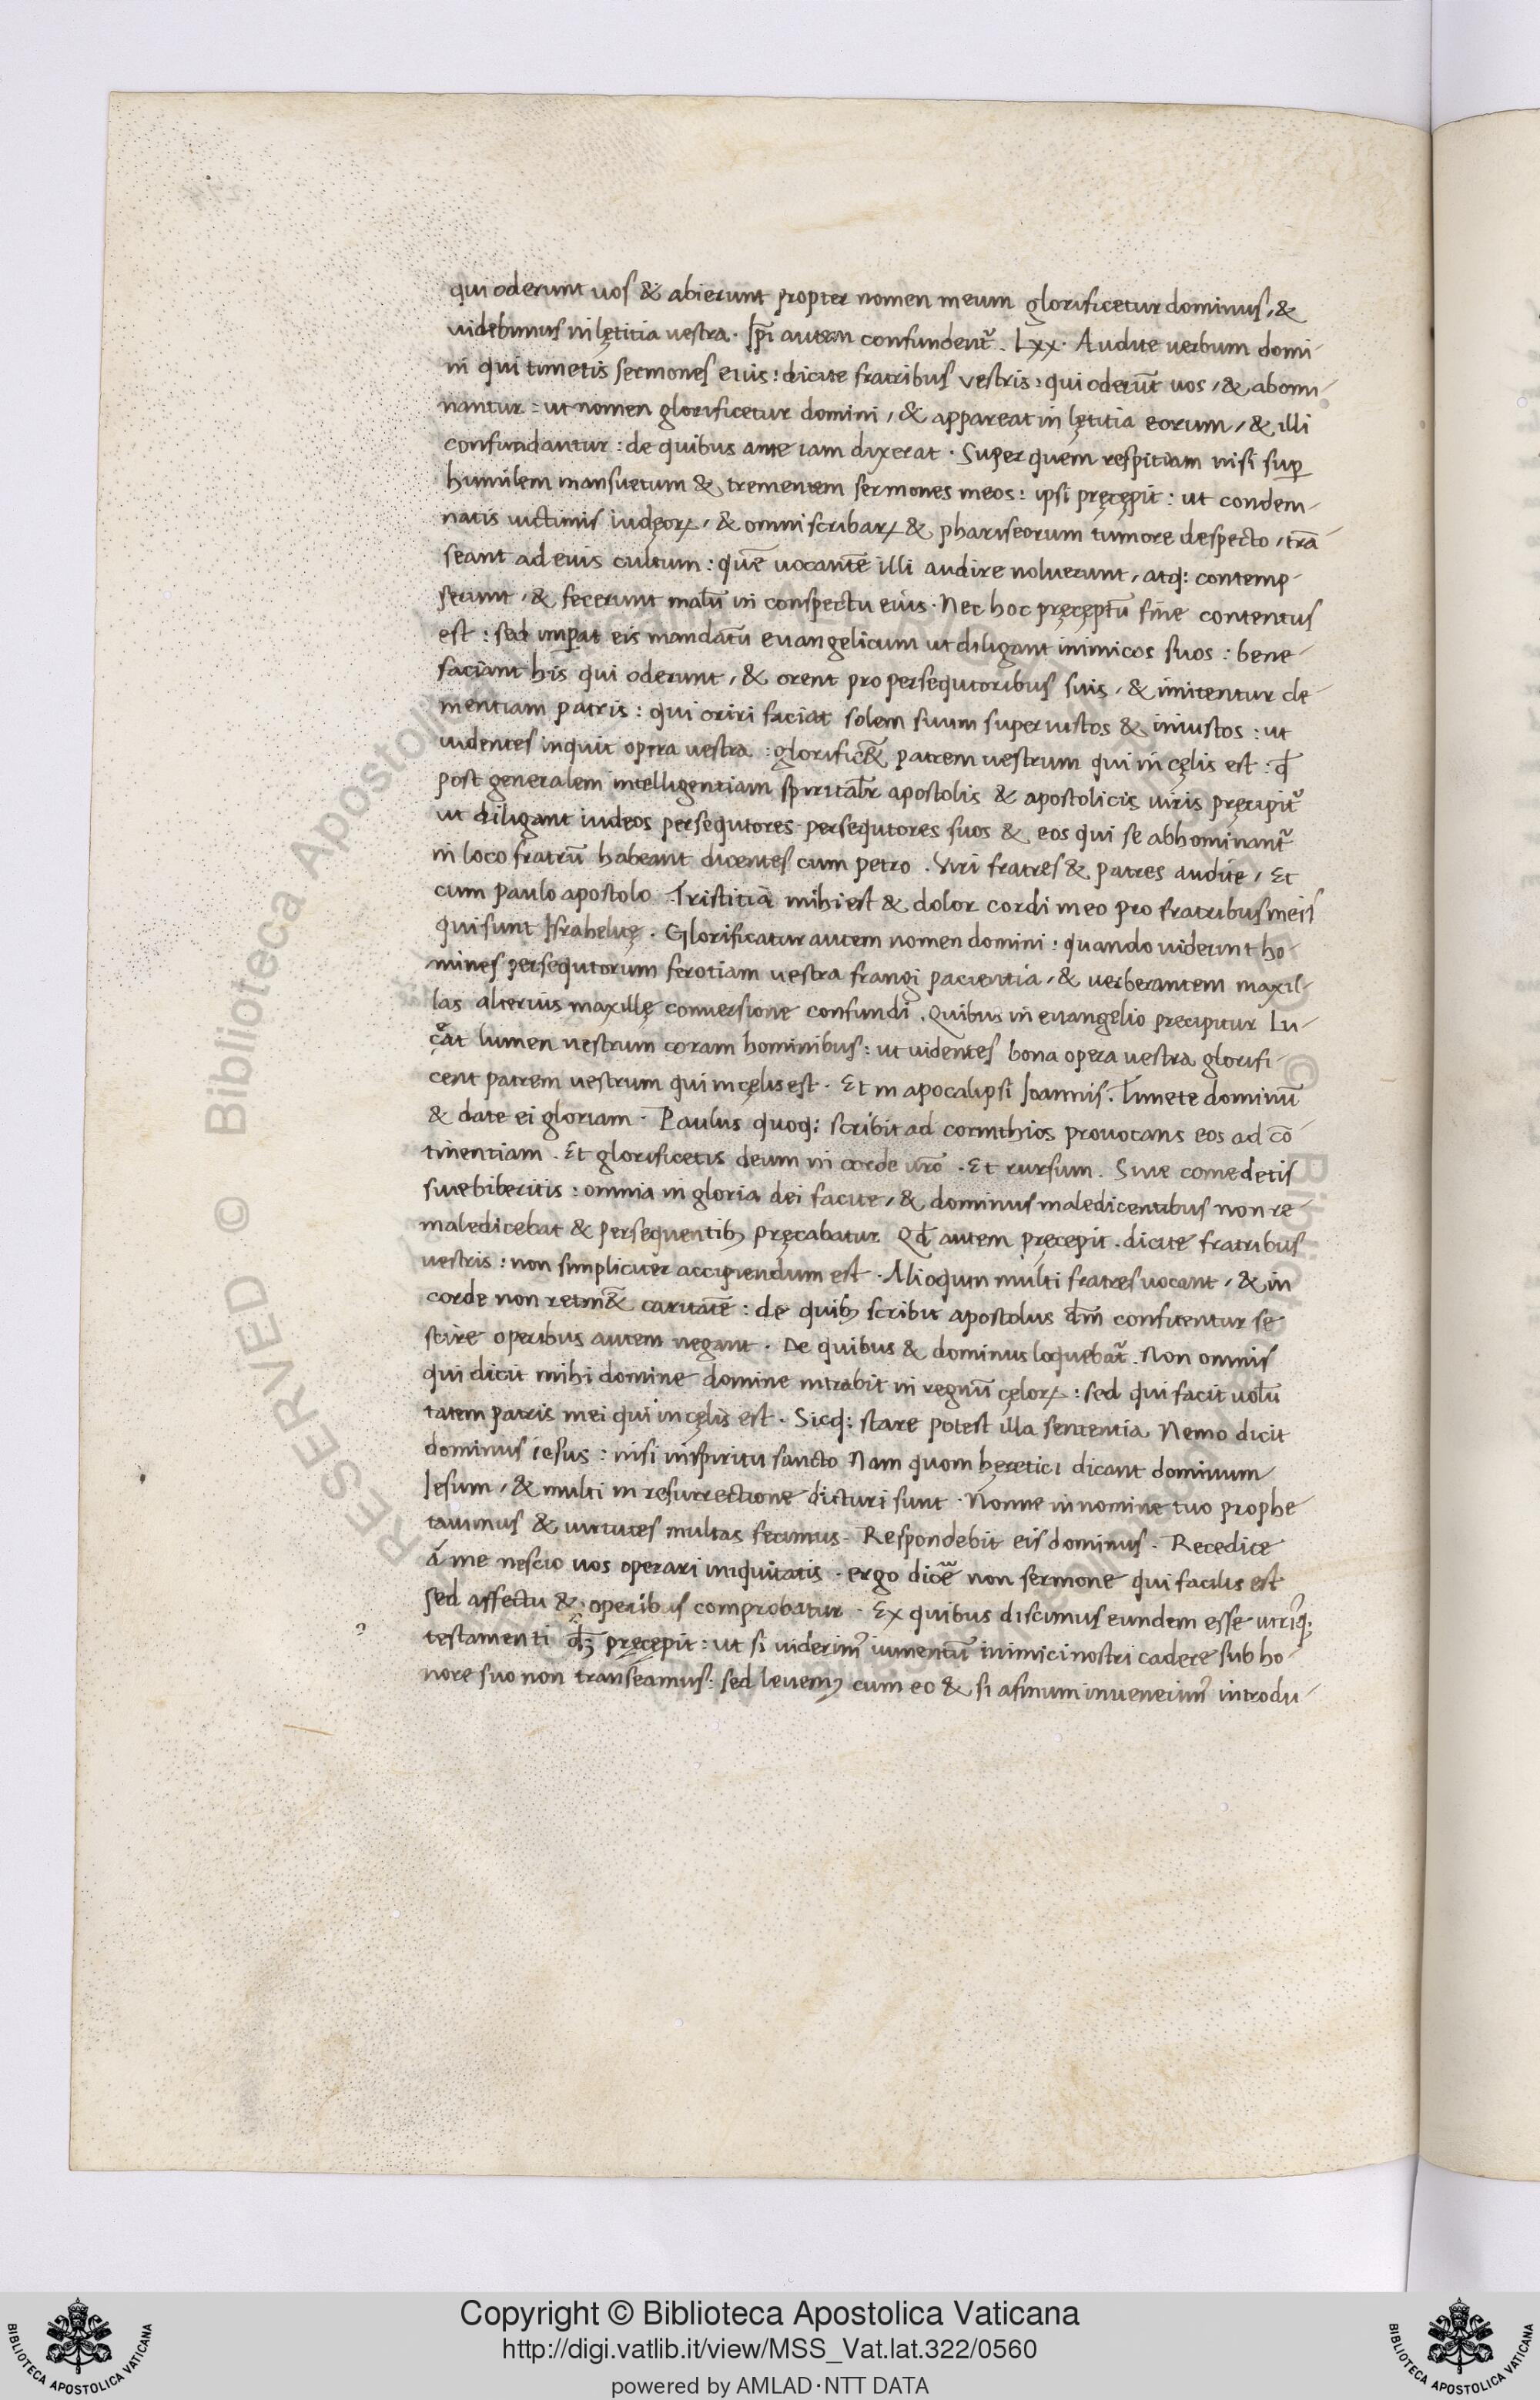 qui oderunt uos & abierunt propter nomen meum glorificetur dominus, &
uidebimus in lętitia uestra. Ip̄i autem confundent᷑. Lxx. Audite uerbum domi-
ni qui timetis sermones eius: dicite fratribus vestris: qui oderūt uos, & abomi-
nantur: ut nomen glorificetur domini, & appareat in lętitia eorum, & illi
confundantur: de quibus ante iam dixerat. Super quem respitiam nisi suꝑ
humilem mansuetum & trementem sermones meos: ipsi pręcępit: ut condem-
natis uictimis iudęoꝝ, & omni scribaꝝ & phariseorum tumore despecto, trā-
seant ad euis cultum: quē uocantē illi audire noluerunt, atq: contemp-
serunt, & fecerunt malū in conspectu eius. Nec hoc pręcęptū fine contentus
est: sed imꝑat eis mandatū euangelicum ut diligant inimicos suos: bene-
faciant his qui oderunt, & orent pro persequtoribus suis, & imitentur cle-
mentiam patris: qui oriri faciat solem suum super iustos & iniustos: ut
uidentes inquit opera uestra: glorific&̄ patrem uestrum qui in cęlis est: qđ
post generalem intelligentiam spiritabr̄ apostolis & apostolicis uiris pręcipit᷑
ut diligant iudeos persequtores persequtores suos & eos qui se abhominant᷑
in loco fratrū habeant dicentes cum petro. Viri fratres & patres audite, Et
cum paulo apostolo Tristitia mihi est & dolor cordi meo pro fratribus meis
qui sunt Israhelitę. Glorificatur autem nomen domini: quando uiderunt ho-
mines persequtorum ferotiam uestra frangi pacientia, & uerberantem maxil-
las alterius maxillę conuersione confundi. Quibus in euangelio precipitur Lu-
ceat lumen uestrum coram hominibus: ut uidentes bona opera uestra glorifi-
cent patrem uestrum qui in cęlis est. Et in apocalipsi Ioannis. Timete dominū
& date ei gloriam. Paulus quoq: scribit ad corinthios prouocans eos ad cō-
tinentiam. Et glorificetis deum in corde ur̄o. Et rursum. Siue comedetis
siue biberitis: omnia in gloria dei facite, & dominus maledicentibus non re-
maledicebat & persequentibꝫ pręcabatur. Qđ autem pręcepit. dicite fratribus
uestris: non simpliciter accipiendum est. Alioquin multi fratres uocant, & in
corde non retin&̄ caritatē: de quibꝫ scribit apostolus dm̄ confitentur se
scire operibus autem negant. De quibus & dominus loquebat᷑. Non omnis
qui dicit mihi domine domine intrabit in regnū cęloꝝ: sed qui facit uolū
tatem patris mei qui in cęlis est. Sicq: stare potest illa sententia Nemo dicit
dominus iesus: nisi in spiritu sancto Nam quom hęretici dicant dominum
Iesum, & multi in resurrectione dicturi sunt. Nonne in nomine tuo prophe
tauimus & uirtutes multas fecimus. Respondebit eis dominus. Recedite
á me nescio uos operari iniquitatis. ergo non sermone qui facilis est
sed affectu & operibus comprobatur. Ex quibus discimus eundem esse utriꝰq;
testamenti pręcepit: ut si uiderimꝰ iumentū inimici nostri cadere sub ho-
nore suo non transeamus: sed leuemꝰ cum eo & si asinum inuenerimꝰ introdu-
?
RESERVED © Biblioteca Apostolica Vaticana
Copyright © Biblioteca Apostolica Vaticana
http://digi.vatlib.it/view/MSS_Vat.lat.322/0560
powered by AMLAD·NTT DATA
BIBLIOTECA APOSTOLICA VATICANA
BIBLIOTECA APOSTOLICA VATICANA